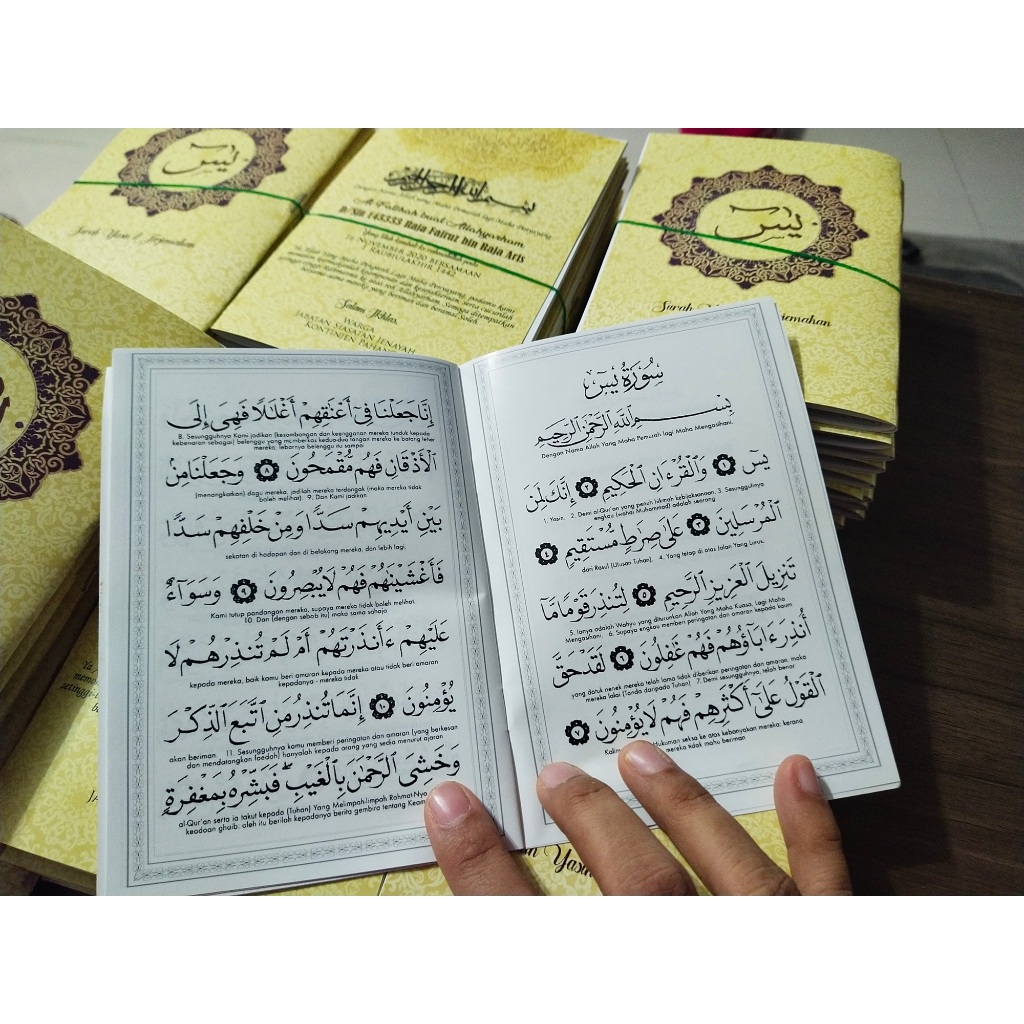 يس
Surah Yasin & Terjemahan
بسم الله الرحمن الرحيم
Al Fatihah buat Allahyarham
D/SJN 143333 Raja Fairuz bin Raja Aris
Yang telah kembali ke rahmatullah pada
16 NOVEMBER 2020 BERSAMAAN
1 RABIULAKHIR 1442
Salam Ikhlas,
WARGA
JABATAN SIASATAN JENAYAH
KONTINJEN PAHANG
يس
Surah
سُورَةُ يسٓ
بِسْمِ ٱللَّهِ ٱلرَّحْمَٰنِ ٱلرَّحِيمِ
Dengan Nama Allah Yang Maha Pemurah lagi Maha Mengasihani.
يسٓ ١ وَٱلْقُرْءَانِ ٱلْحَكِيمِ ٢ إِنَّكَ لَمِنَ
1. Yasin. 2. Demi al-Qur'an yang penuh hikmah kebijaksanaan, 3. Sesungguhnya
engkau (wahai Muhammad) adalah seorang
ٱلْمُرْسَلِينَ ٣ عَلَىٰ صِرَٰطٍ مُّسْتَقِيمٍ ٤
dari Rasul (Utusan Tuhan), 4. Yang tetap di atas Jalan Yang Lurus.
تَنزِيلَ ٱلْعَزِيزِ ٱلرَّحِيمِ ٥ لِتُنذِرَ قَوْمًا مَّآ
5. Ianya adalah Wahyu yang diturunkan Allah Yang Maha Kuasa, Lagi Maha
Mengasihani. 6. Supaya engkau memberi peringatan dan amaran kepada kaum
أُنذِرَ ءَابَآؤُهُمْ فَهُمْ غَٰفِلُونَ ٦ لَقَدْ حَقَّ
yang datuk nenek mereka telah lama tidak diberikan peringatan dan amaran; maka
mereka lalai (Tanda daripada Tuhan). 7. Demi sesungguhnya, telah benar
ٱلْقَوْلُ عَلَىٰٓ أَكْثَرِهِمْ فَهُمْ لَا يُؤْمِنُونَ ٧
Hukuman seksa ke atas kebanyakan mereka; kerana
mereka tidak mahu beriman
إِنَّا جَعَلْنَا فِىٓ أَعْنَٰقِهِمْ أَغْلَٰلًا فَهِىَ إِلَى
8. Sesungguhnya Kami jadikan (kesombongan dan keengganan mereka tunduk kepada
kebenaran sebagai) belenggu yang memberkas kedua-dua tangan mereka ke batang leher
mereka, lebarnya belenggu itu sampai
ٱلْأَذْقَانِ فَهُم مُّقْمَحُونَ ٨ وَجَعَلْنَا مِنۢ
(menongkatkan) dagu mereka, jadilah mereka terdongak (maka mereka tidak
boleh melihat). 9. Dan Kami jadikan
بَيْنِ أَيْدِيهِمْ سَدًّا وَمِنْ خَلْفِهِمْ سَدًّا
sekatan di hadapan dan di belakang mereka, dan lebih lagi,
فَأَغْشَيْنَٰهُمْ فَهُمْ لَا يُبْصِرُونَ ٩ وَسَوَآءٌ
Kami tutup pandangan mereka, supaya mereka tidak boleh melihat.
10. Dan (dengan sebab itu) maka sama sahaja
عَلَيْهِمْ ءَأَنذَرْتَهُمْ أَمْ لَمْ تُنذِرْهُمْ لَا
kepada mereka, baik kamu beri amaran kepada mereka atau tidak beri amaran
kepadanya - mereka tidak
يُؤْمِنُونَ ١٠ إِنَّمَا تُنذِرُ مَنِ ٱتَّبَعَ ٱلذِّكْرَ
akan beriman. 11. Sesungguhnya kamu memberi peringatan dan amaran (yang berkesan
dan mendatangkan faedah) hanyalah kepada orang yang sedia menurut ajaran
وَخَشِىَ ٱلرَّحْمَٰنَ بِٱلْغَيْبِ ۖ فَبَشِّرْهُ بِمَغْفِرَةٍ
al-Qur'an serta ia takut kepada (Tuhan) Yang Melimpah-limpah Rahmat-Nya
keadaan ghaib; oleh itu berilah kepadanya berita gembira tentang